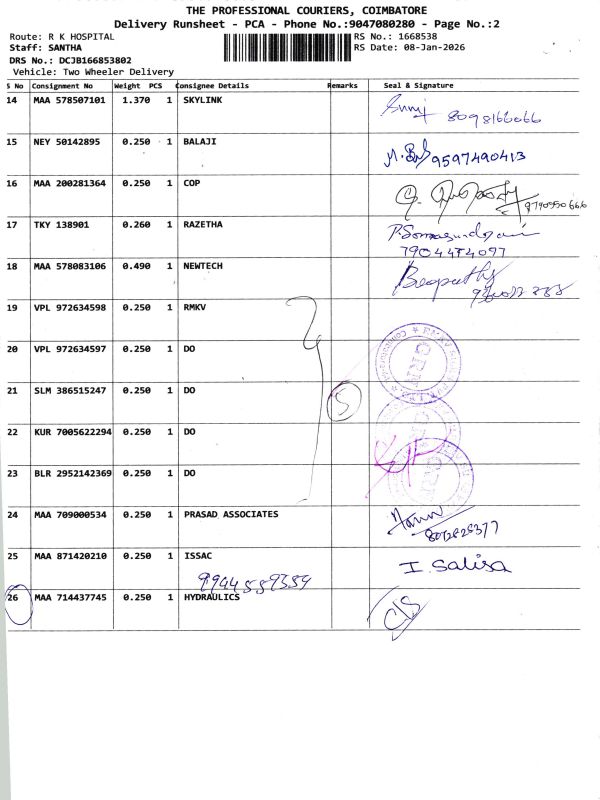 THE PROFESSIONAL COURIERS, COIMBATORE
Delivery Runsheet - PCA - Phone No.:9047080280 - Page No.:2
Route: R K HOSPITAL
RS No.: 1668538
Staff: SANTHA
RS Date: 08-Jan-2026
DRS No.: DCJB166853802
Vehicle: Two Wheeler Delivery
S No Consignment No Weight PCS Consignee Details Remarks Seal & Signature
14 MAA 578507101 1.370 1 SKYLINK
8098166066
15 NEY 50142895 0.250 1 BALAJI
9597490413
16 MAA 200281364 0.250 1 COP
17 TKY 138901 0.260 1 RAZETHA
18 MAA 578083106 0.490 1 NEWTECH
19 VPL 972634598 0.250 1 RMKV
20 VPL 972634597 0.250 1 DO
21 SLM 386515247 0.250 1 DO
5
22 KUR 7005622294 0.250 1 DO
23 BLR 2952142369 0.250 1 DO
24 MAA 709000534 0.250 1 PRASAD ASSOCIATES
25 MAA 871420210 0.250 1 ISSAC
I. Salisa
26 MAA 714437745 0.250 1 HYDRAULICS
C/S